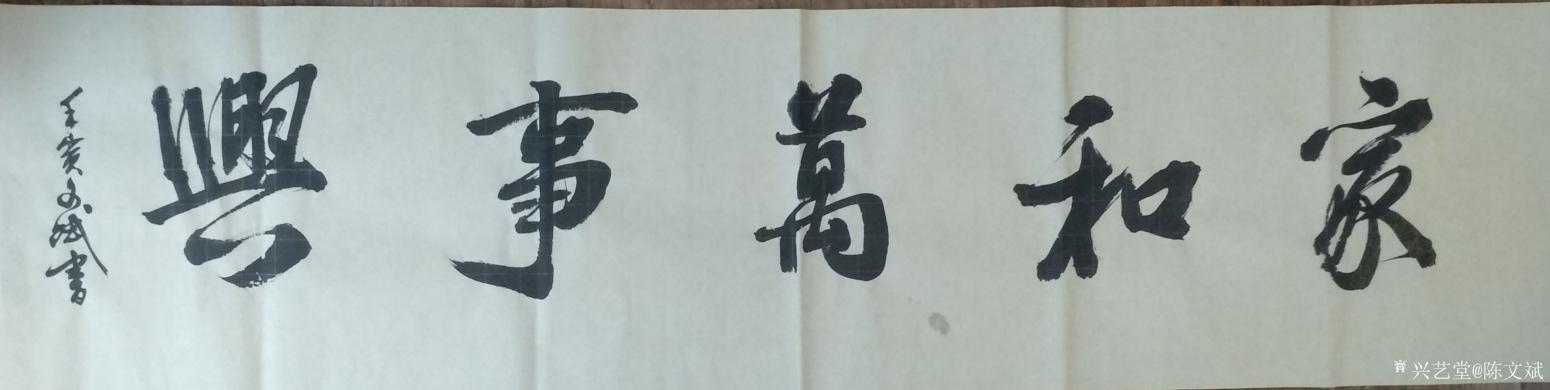 家和萬事興
壬寅文斌書
兴艺堂@陈文斌